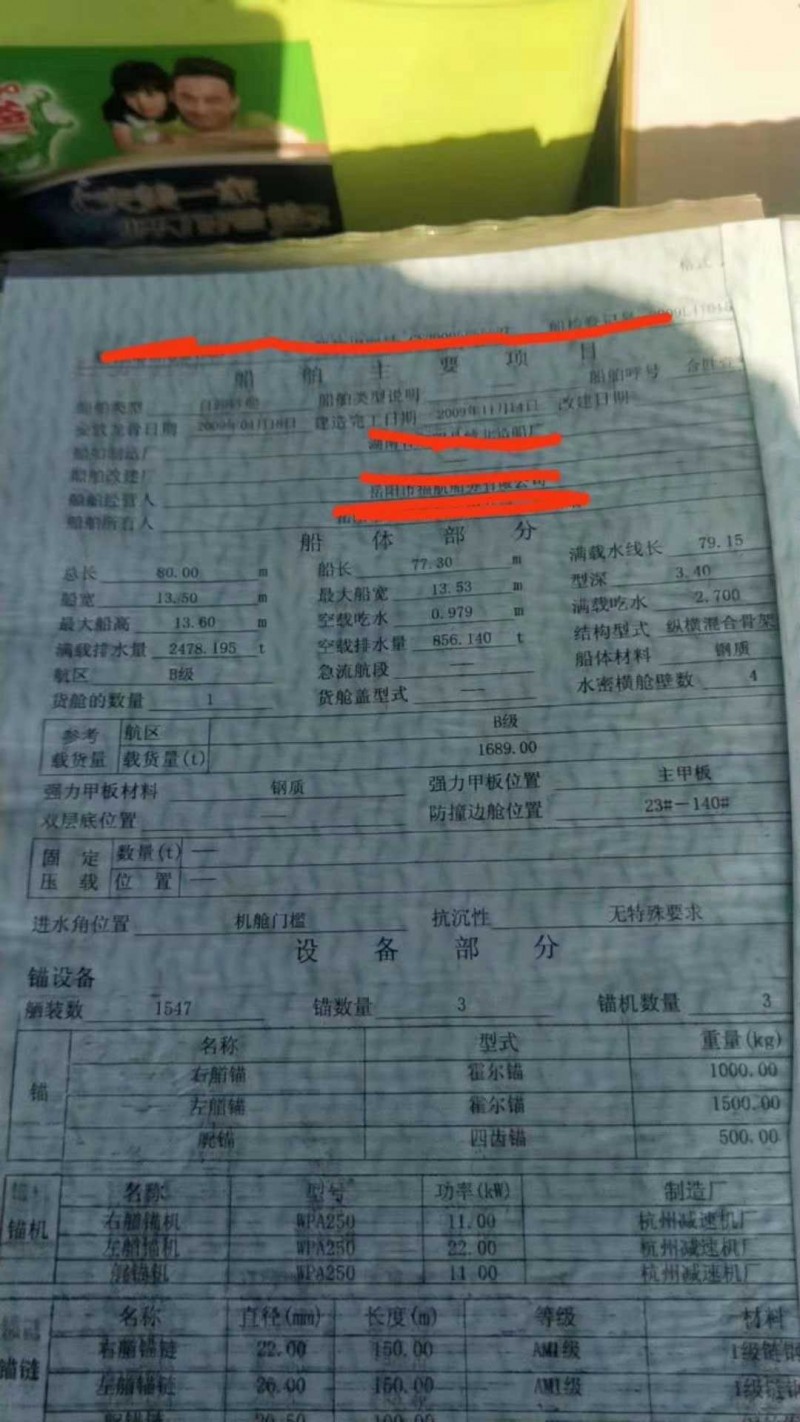 格式
船舶主要项目
船舶类型 自卸砂船 船舶类型说明 船舶呼号
安放龙骨日期 2009年04月18日 建造完工日期 2009年11月14日 改建日期
船舶制造厂
船舶改建厂
船舶经营人 岳阳市 航船务有限公司
船舶所有人
船体部分
总长 80.00 m 船长 77.30 m 满载水线长 79.15
船宽 13.50 m 最大船宽 13.53 m 型深 3.40
最大船高 13.60 m 空载吃水 0.979 m 满载吃水 2.700
满载排水量 2478.195 t 空载排水量 856.140 t 结构型式 纵横混合骨架
航区 B级 急流航段 — 船体材料 钢质
货舱的数量 1 货舱盖型式 — 水密横舱壁数 4
参考载货量 航区 B级
载货量(t) 1689.00
强力甲板材料 钢质 强力甲板位置 主甲板
双层底位置 — 防撞边舱位置 23#-140#
固定压载 数量(t) —
位置 —
进水角位置 机舱门槛 抗沉性 无特殊要求
设备部分
锚设备
舾装数 1547 锚数量 3 锚机数量 3
锚 名称 型式 重量(kg)
右艏锚 霍尔锚 1000.00
左艏锚 霍尔锚 1500.00
艉锚 四齿锚 500.00
锚机 名称 型号 功率(kW) 制造厂
右艏锚机 WPA250 11.00 杭州减速机厂
左艏锚机 WPA250 22.00 杭州减速机厂
艉锚机 WPA250 11.00 杭州减速机厂
锚链 名称 直径(mm) 长度(m) 等级 材料
右艏锚链 22.00 150.00 AM1级 1级链钢
左艏锚链 26.00 150.00 AM1级 1级链钢
艉锚链 20.50 100.00